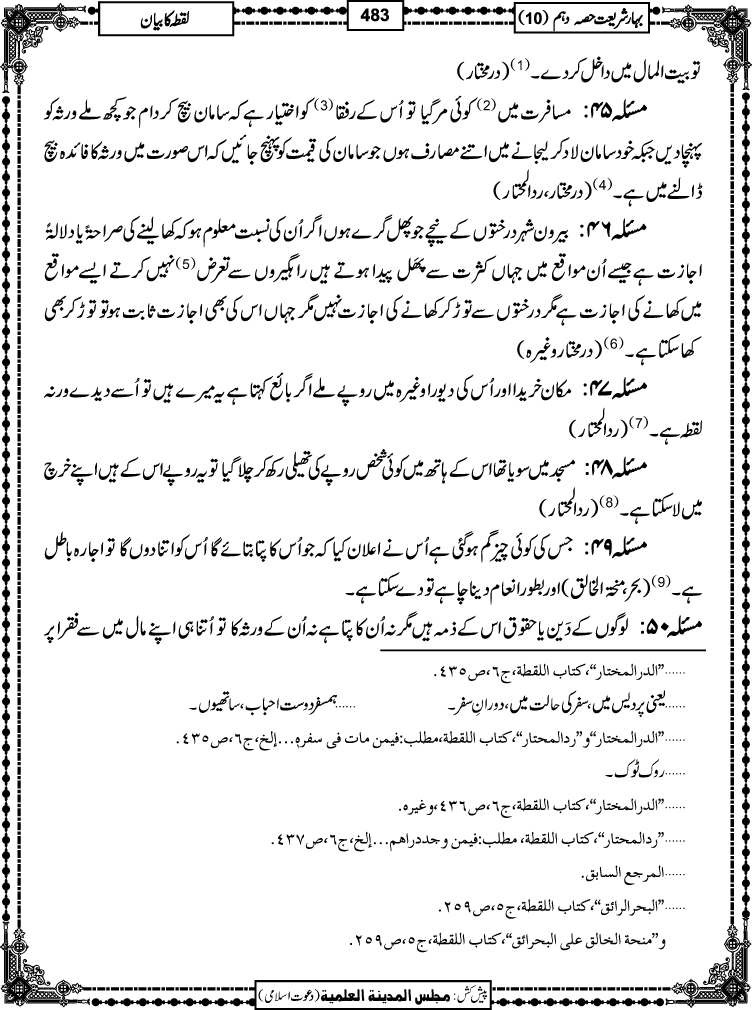 بہارِشریعت حصہ دہم (10)
483
لقطہ کا بیان
تو بیت المال میں داخل کردے۔(1) (درمختار)
مسئلہ ۴۵: مسافرت میں(2) کوئی مرگیا تو اُس کے رفقا(3) کو اختیار ہے کہ سامان بیچ کر دام جو کچھ ملے ورثہ کو
پہنچادیں جبکہ خود سامان لاد کر لیجانے میں اتنے مصارف ہوں جو سامان کی قیمت کو پہنچ جائیں کہ اس صورت میں ورثہ کا فائدہ بیچ
ڈالنے میں ہے۔(4) (درمختار، ردالمحتار)
مسئلہ ۴۶: بیرون شہر درختوں کے نیچے جو پھل گرے ہوں اگر اُن کی نسبت معلوم ہو کہ کھالینے کی صراحۃً یا دلالۃً
اجازت ہے جیسے اُن مواقع میں جہاں کثرت سے پھَل پیدا ہوتے ہیں راہگیروں سے تعرض(5) نہیں کرتے ایسے مواقع
میں کھانے کی اجازت ہے مگر درختوں سے توڑ کر کھانے کی اجازت نہیں مگر جہاں اس کی بھی اجازت ثابت ہو تو توڑ کر بھی
کھا سکتا ہے۔(6) (درمختار وغیرہ)
مسئلہ ۴۷: مکان خریدا اور اُس کی دیوار وغیرہ میں روپے ملے اگر بائع کہتا ہے یہ میرے ہیں تو اُسے دیدے ورنہ
لقطہ ہے۔(7) (ردالمحتار)
مسئلہ ۴۸: مسجد میں سویا تھا اس کے ہاتھ میں کوئی شخص روپے کی تھیلی رکھ کر چلا گیا تو یہ روپے اس کے ہیں اپنے خرچ
میں لاسکتا ہے۔(8) (ردالمحتار)
مسئلہ ۴۹: جس کی کوئی چیز گم ہوگئی ہے اُس نے اعلان کیا کہ جو اُس کا پتا بتائے گا اُس کو اتنا دوں گا تو اجارہ باطل
ہے۔(9) (بحر، منحۃ الخالق) اور بطور انعام دینا چاہے تو دے سکتا ہے۔
مسئلہ ۵۰: لوگوں کے دَین یا حقوق اس کے ذمہ ہیں مگر نہ اُن کا پتا ہے نہ اُن کے ورثہ کا تو اُتنا ہی اپنے مال میں سے فقرا پر
......”الدرالمختار“،کتاب اللقطة،ج٦،ص٤٣٥.
......یعنی پردیس میں،سفر کی حالت میں،دورانِ سفر۔ ......ہمسفر دوست احباب،ساتھیوں۔
......”الدرالمختار“و”ردالمحتار“،کتاب اللقطة،مطلب:فیمن مات فی سفرہ...إلخ،ج٦،ص٤٣٥.
......روک ٹوک۔
......”الدرالمختار“،کتاب اللقطة،ج٦،ص٤٣٦،وغیرہ.
......”ردالمحتار“،کتاب اللقطة، مطلب:فیمن وجددراهم...إلخ،ج٦،ص٤٣٧.
......المرجع السابق.
......”البحرالرائق“،کتاب اللقطة،ج٥،ص٢٥٩.
و ”منحة الخالق علی البحرائق“،کتاب اللقطة،ج٥،ص٢٥٩.
پیش کش: مجلس المدینة العلمیة (دعوت اسلامی)